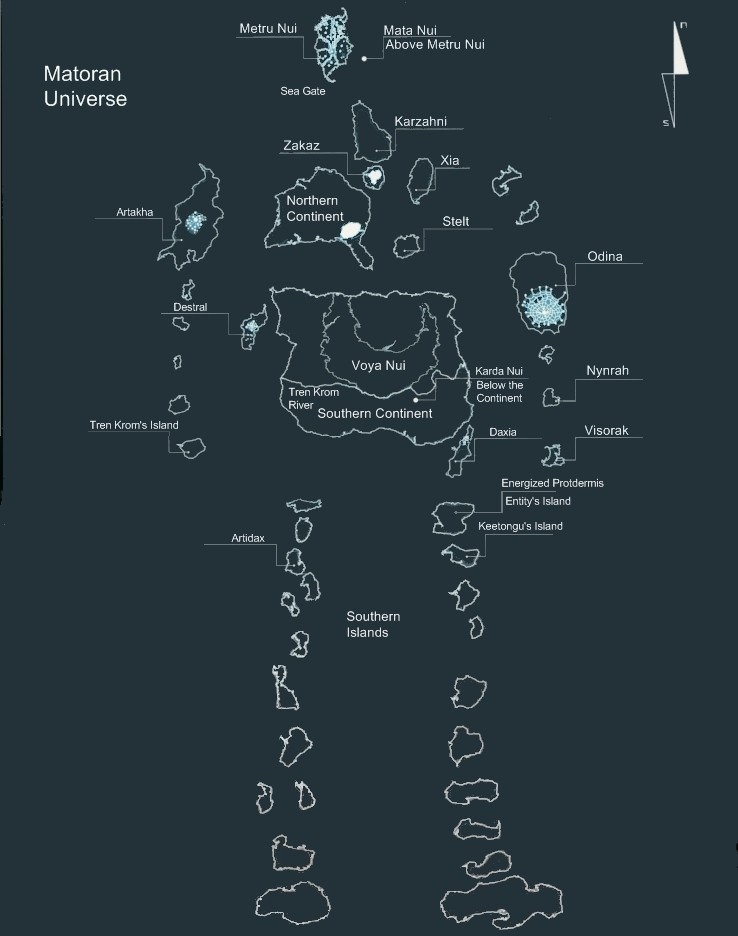 Metru Nui
Mata Nui
Above Metru Nui
n
Matoran
Universe
Sea Gate
s
Karzahni
Zakaz
Xia
Northern
Continent
Artakha
Stelt
Odina
Destral
Voya Nui
Karda Nui
Below the
Continent
Nynrah
Tren Krom
River
Southern Continent
Tren Krom's Island
Daxia
Visorak
Energized Protdermis
Entity's Island
Keetongu's Island
Artidax
Southern
Islands